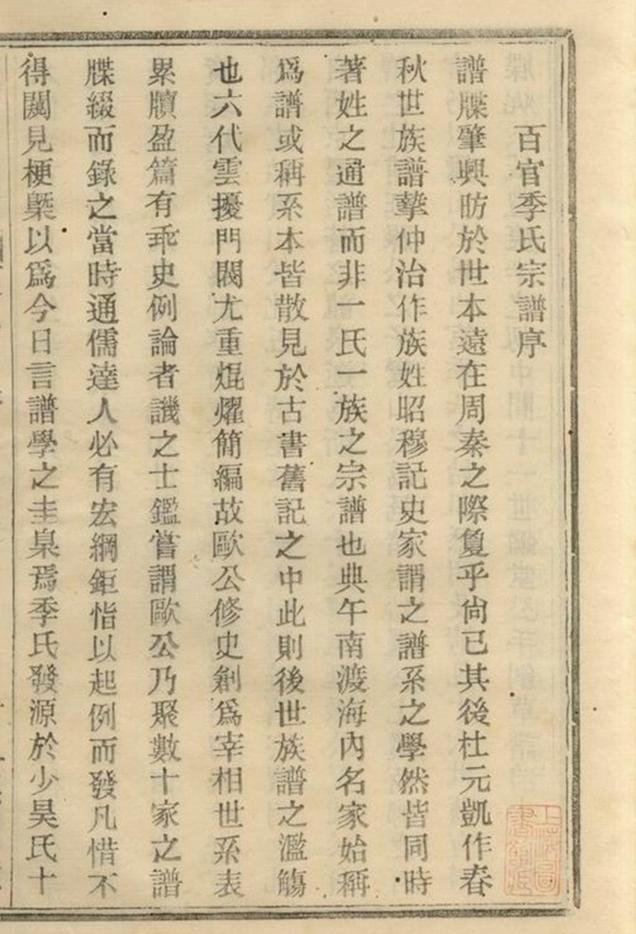 百官季氏宗譜序
譜牒肇興昉於世本遠在周秦之際夐乎尙已其後杜元凱作春
秋世族譜摯仲治作族姓昭穆記史家謂之譜系之學然皆同時
著姓之通譜而非一氏一族之宗譜也典午南渡海內名家始稱
爲譜或稱系本皆散見於古書舊記之中此則後世族譜之濫觴
也六代雲擾門閥尤重焜燿簡編故歐公修史創爲宰相世系表
累牘盈篇有乖史例論者譏之士鑑嘗謂歐公乃聚數十家之譜
牒綴而錄之當時通儒達人必有宏綱鉅恉以起例而發凡惜不
得闚見梗槩以爲今日言譜學之圭臬焉季氏發源於少昊氏十